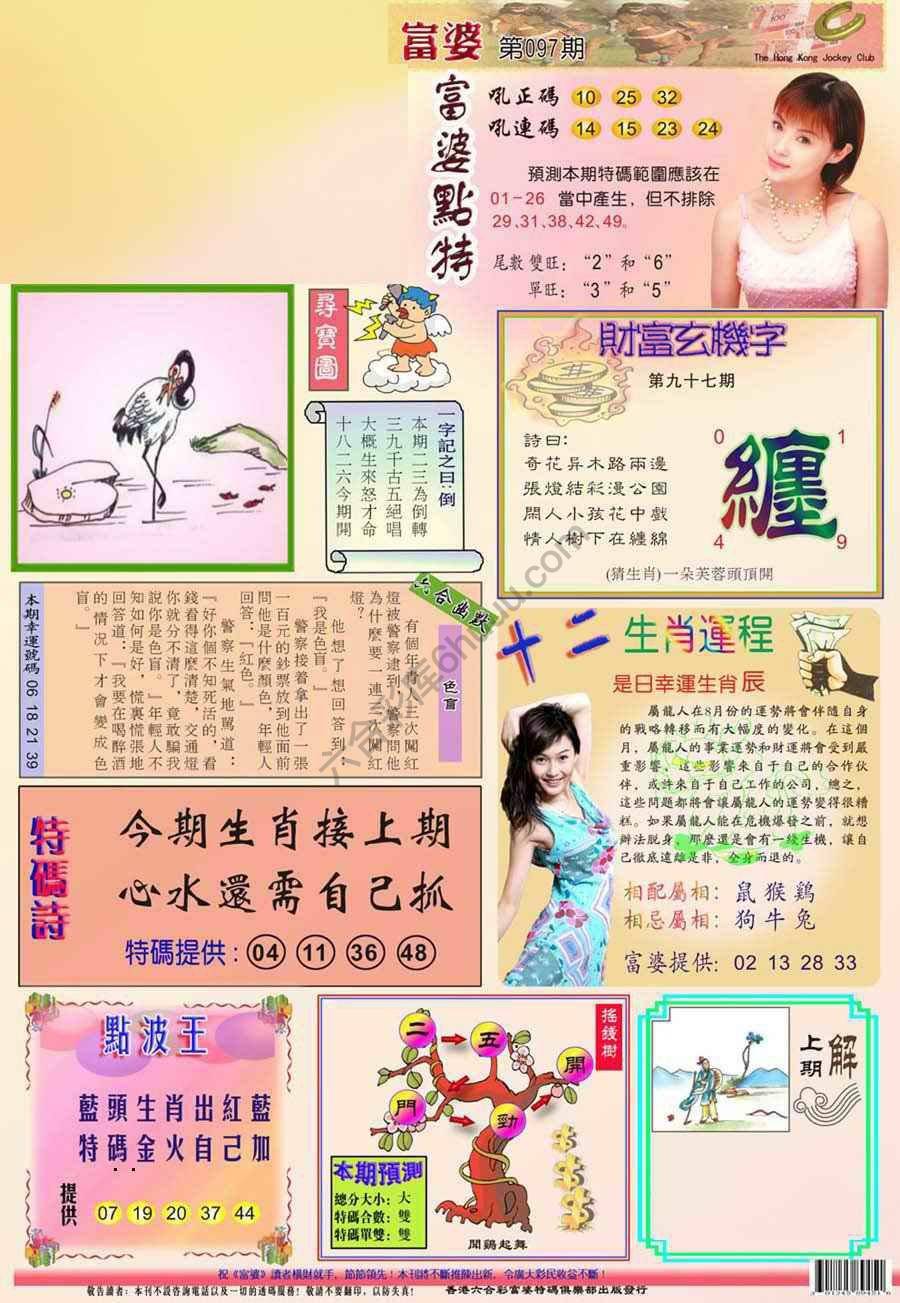 富婆 第097期
The Hong Kong Jockey Club
富婆點特
吼正碼 10 25 32
吼連碼 14 15 23 24
預測本期特碼範圍應該在
01-26 當中產生，但不排除
29.31.38.42.49。
尾數雙旺：“2”和“6”
單旺：“3”和“5”
尋寶圖
一字記之曰：倒
本期二三為倒轉
三九千古五絕唱
大概生來怒才命
十八二六今期開
財富玄機字
第九十七期
詩曰：
奇花异木路兩邊
張燈結彩漫公園
閙人小孩花中戲
情人樹下在纏綿
0 1
纏
4 9
(猜生肖)一朵芙蓉頭頂開
六合幽默
色盲
有個年青人三次闖紅
燈被警察逮到，警察問他
為什麼要一連三次闖紅
燈？
他想了想回答到：
『我是色盲。』
警察接着拿出了一張
一百元的鈔票放到他面前
問他是什麼顏色，年輕人
回答：『紅色。』
警察生氣地罵道：
『好你個不知死活的，看
錢看得這麼清楚，交通燈
你就分不清了，竟敢騙我
說你是色盲。』年輕人不
知如何是好，慌裏慌張地
回答道：『我要在喝醉酒
的情况下才會變成色
盲。』
本期幸運號碼 06 18 21 39
十二生肖運程
是日幸運生肖辰
屬龍人在8月份的運勢將會伴隨自身
的戰略轉移而有大幅度的變化。在這個
月，屬龍人的事業運勢和財運將會受到嚴
重影響，這些影響來自于自己的合作伙
伴，或許來自于自己工作的公司，總之，
這些問題都將會讓屬龍人的運勢變得很糟
糕。如果屬龍人能在危機爆發之前，就想
辦法脫身，那麼還是會有一綫生機，讓自
己徹底遠離是非，全身而退的。
相配屬相：鼠猴鷄
相忌屬相：狗牛兔
富婆提供：02 13 28 33
特碼詩
今期生肖接上期
心水還需自己抓
特碼提供：04 11 36 48
點波王
藍頭生肖出紅藍
特碼金火自己加
提供
07 19 20 37 44
搖錢樹
二 五 開
門 勁
本期預測
總分大小：大
特碼合數：雙
特碼單雙：雙
聞鷄起舞
解
上期
祝《富婆》讀者橫財就手，節節領先！本刊將不斷推陳出新，令廣大彩民收益不斷！
敬告讀者：本刊不設咨詢電話以及一切的透碼服務！敬請不要翻印，以防失真！ 香港六合彩富婆特碼俱樂部出版發行